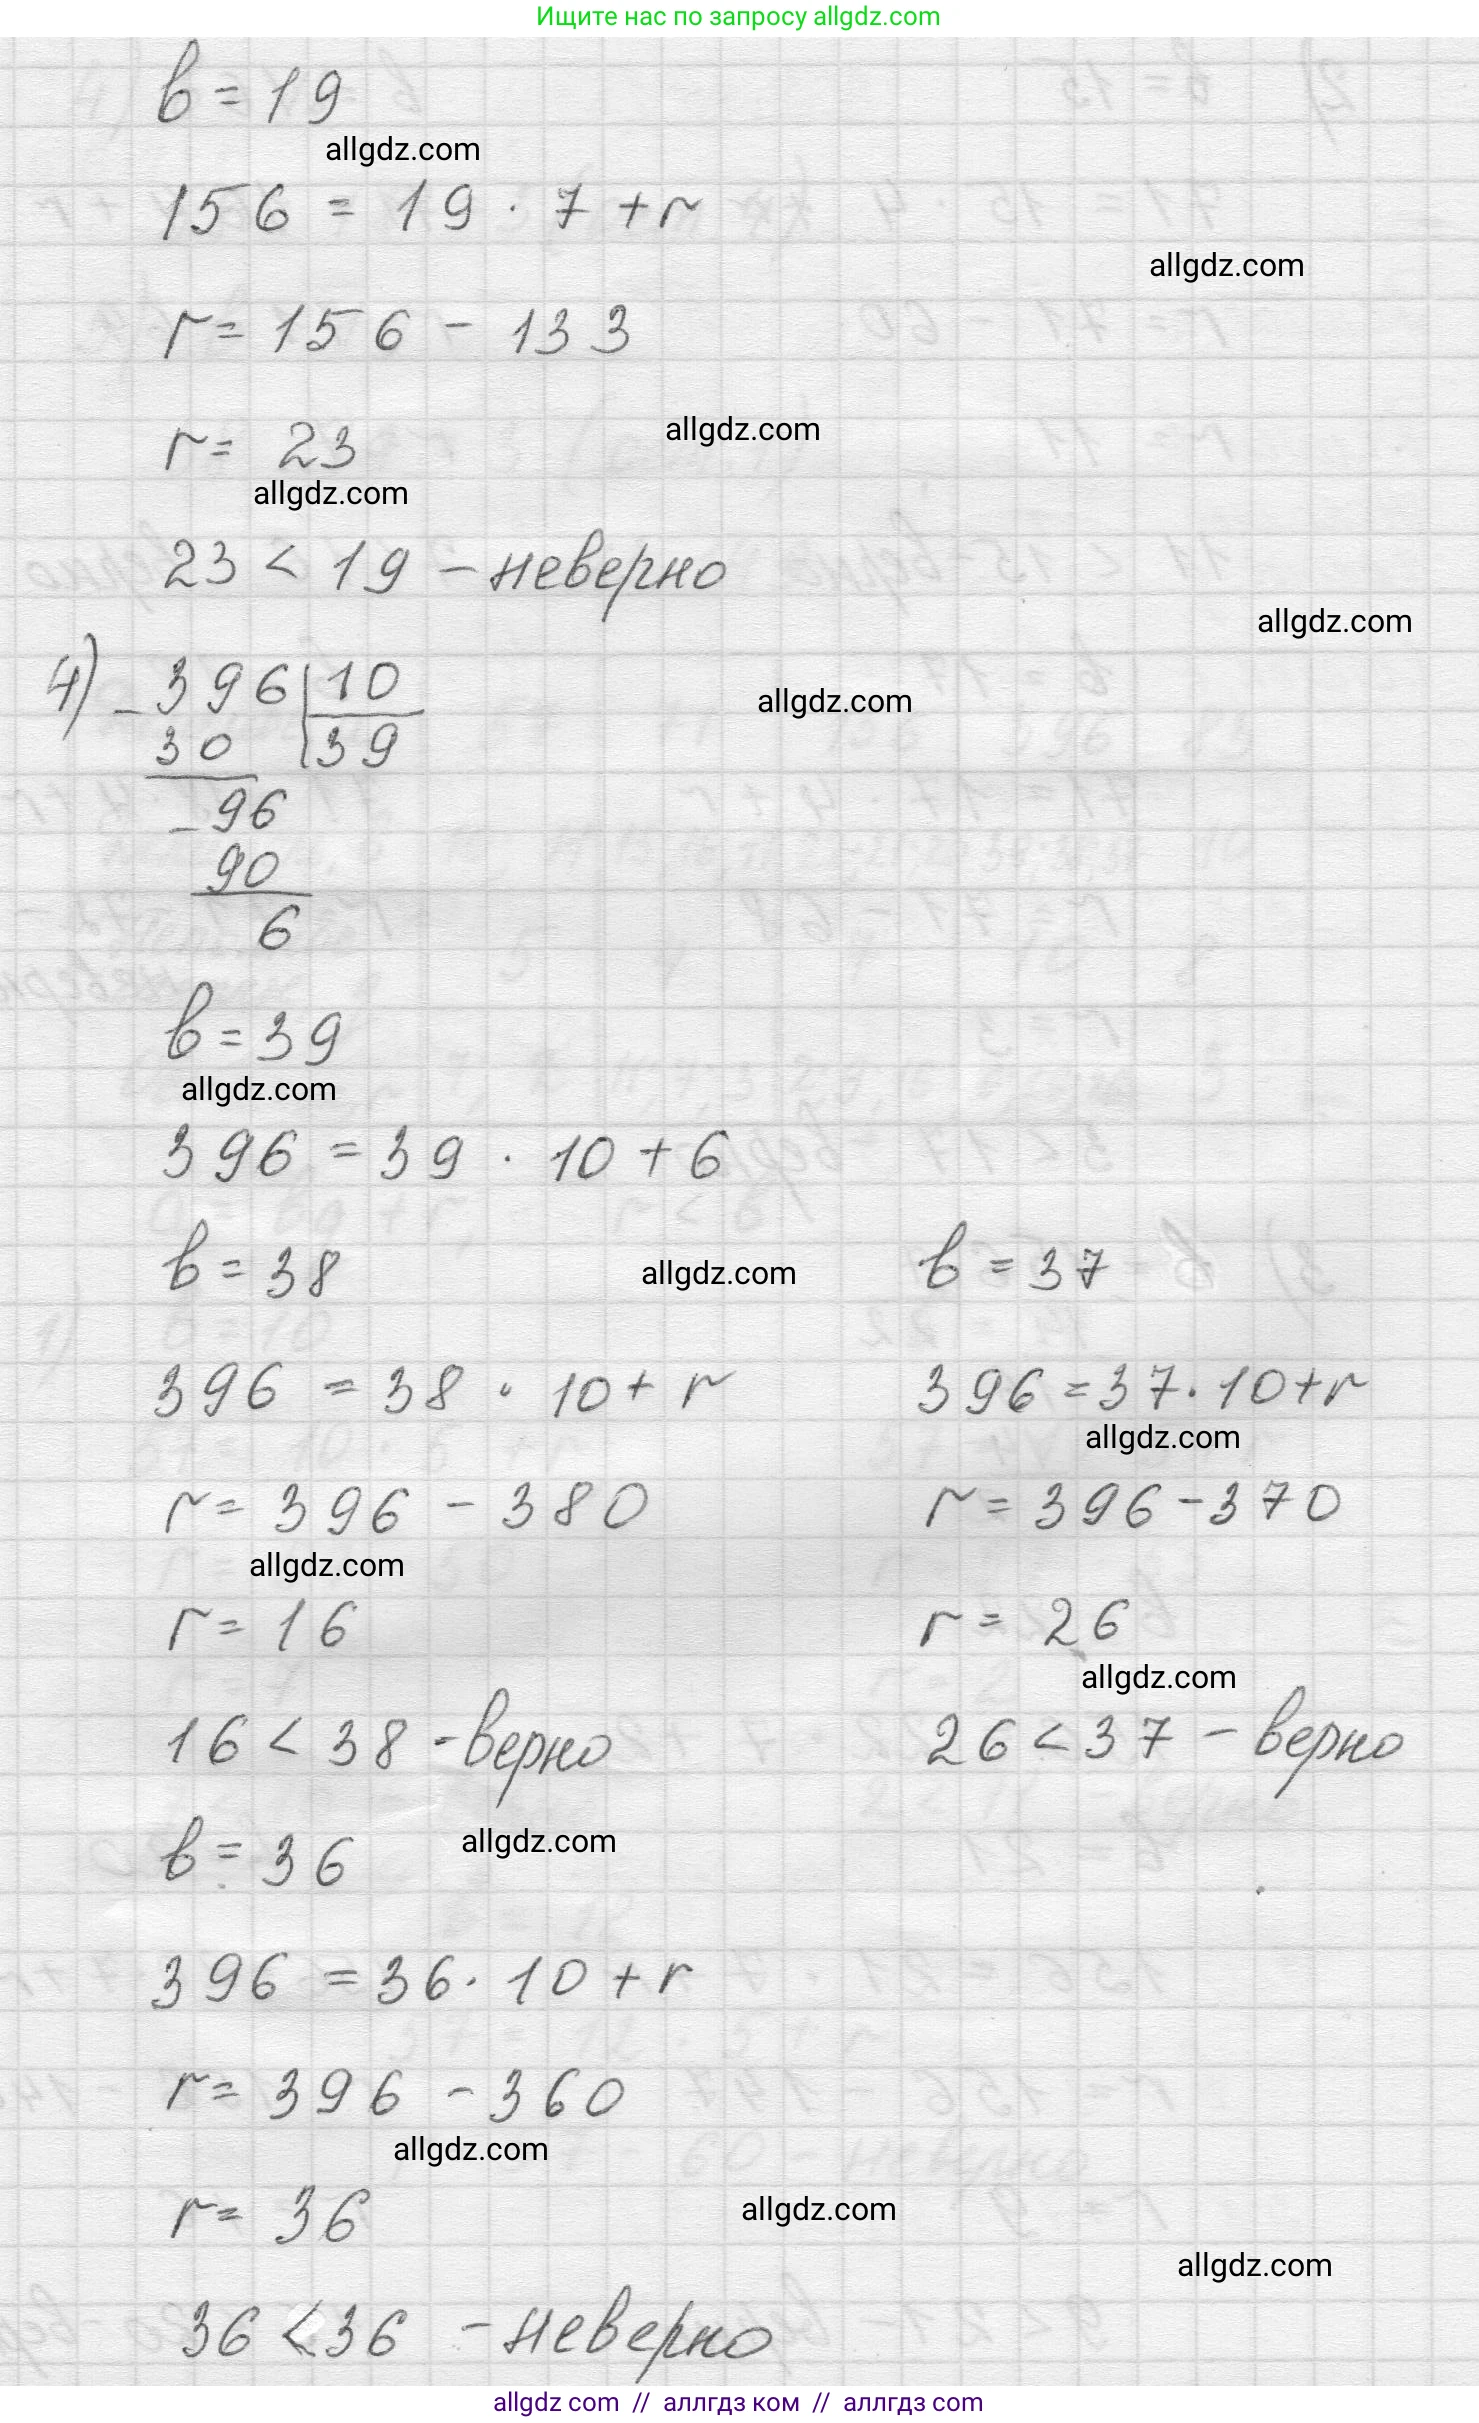 Ищите нас по запросу allgdz.com
в = 19
allgdz.com
156 = 19 · 7 + r
allgdz.com
r = 156 - 133
r = 23
allgdz.com
allgdz.com
23 < 19 - неверно
allgdz.com
4) - 396 | 10
allgdz.com
30 | 39
- 96
90
6
в = 39
allgdz.com
396 = 39 · 10 + 6
в = 38
allgdz.com
396 = 38 · 10 + r
r = 396 - 380
allgdz.com
r = 16
16 < 38 - верно
в = 37
396 = 37 · 10 + r
allgdz.com
r = 396 - 370
r = 26
allgdz.com
26 < 37 - верно
в = 36
allgdz.com
396 = 36 · 10 + r
r = 396 - 360
allgdz.com
r = 36
allgdz.com
allgdz.com
36 < 36 - неверно
allgdz com // аллгдз ком // аллгдз com